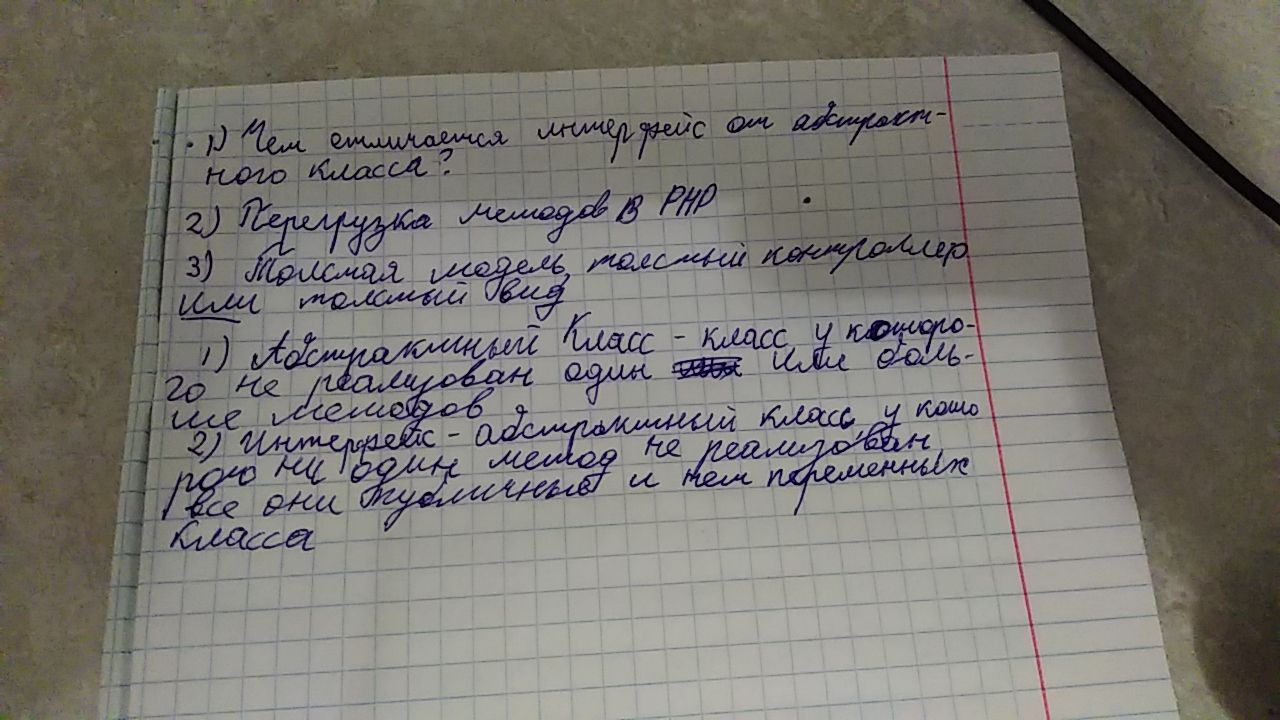 1) Чем отличается интерфейс от абстракт-
ного класса?
2) Перегрузка методов в PHP
3) Толстая модель, толстый контроллер
или толстый вид
1) Абстрактный Класс - класс у которо-
го не реализован один или боль-
ше методов
2) Интерфейс - абстрактный класс, у кото
рого ни один метод не реализован
все они публичные и нет переменных
класса